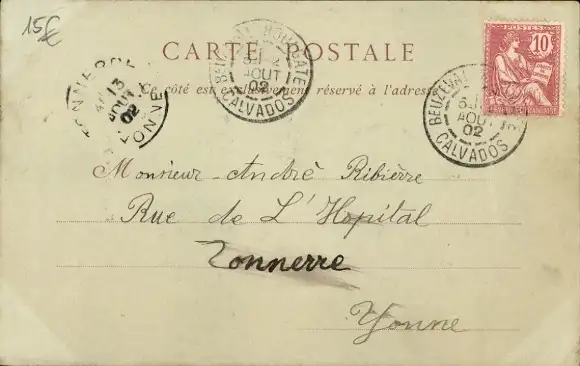 15€
CARTE POSTALE
Ce côté est exclusivement réservé à l'adresse
BEUZEVAL HOULGATE
AOUT
02
CALVADOS
TONNERRE
13
AOUT
02
YONNE
POSTES
10
BEUZEVAL
AOUT
02
CALVADOS
Monsieur André Ribière
Rue de L'Hopital
Tonnerre
Yonne